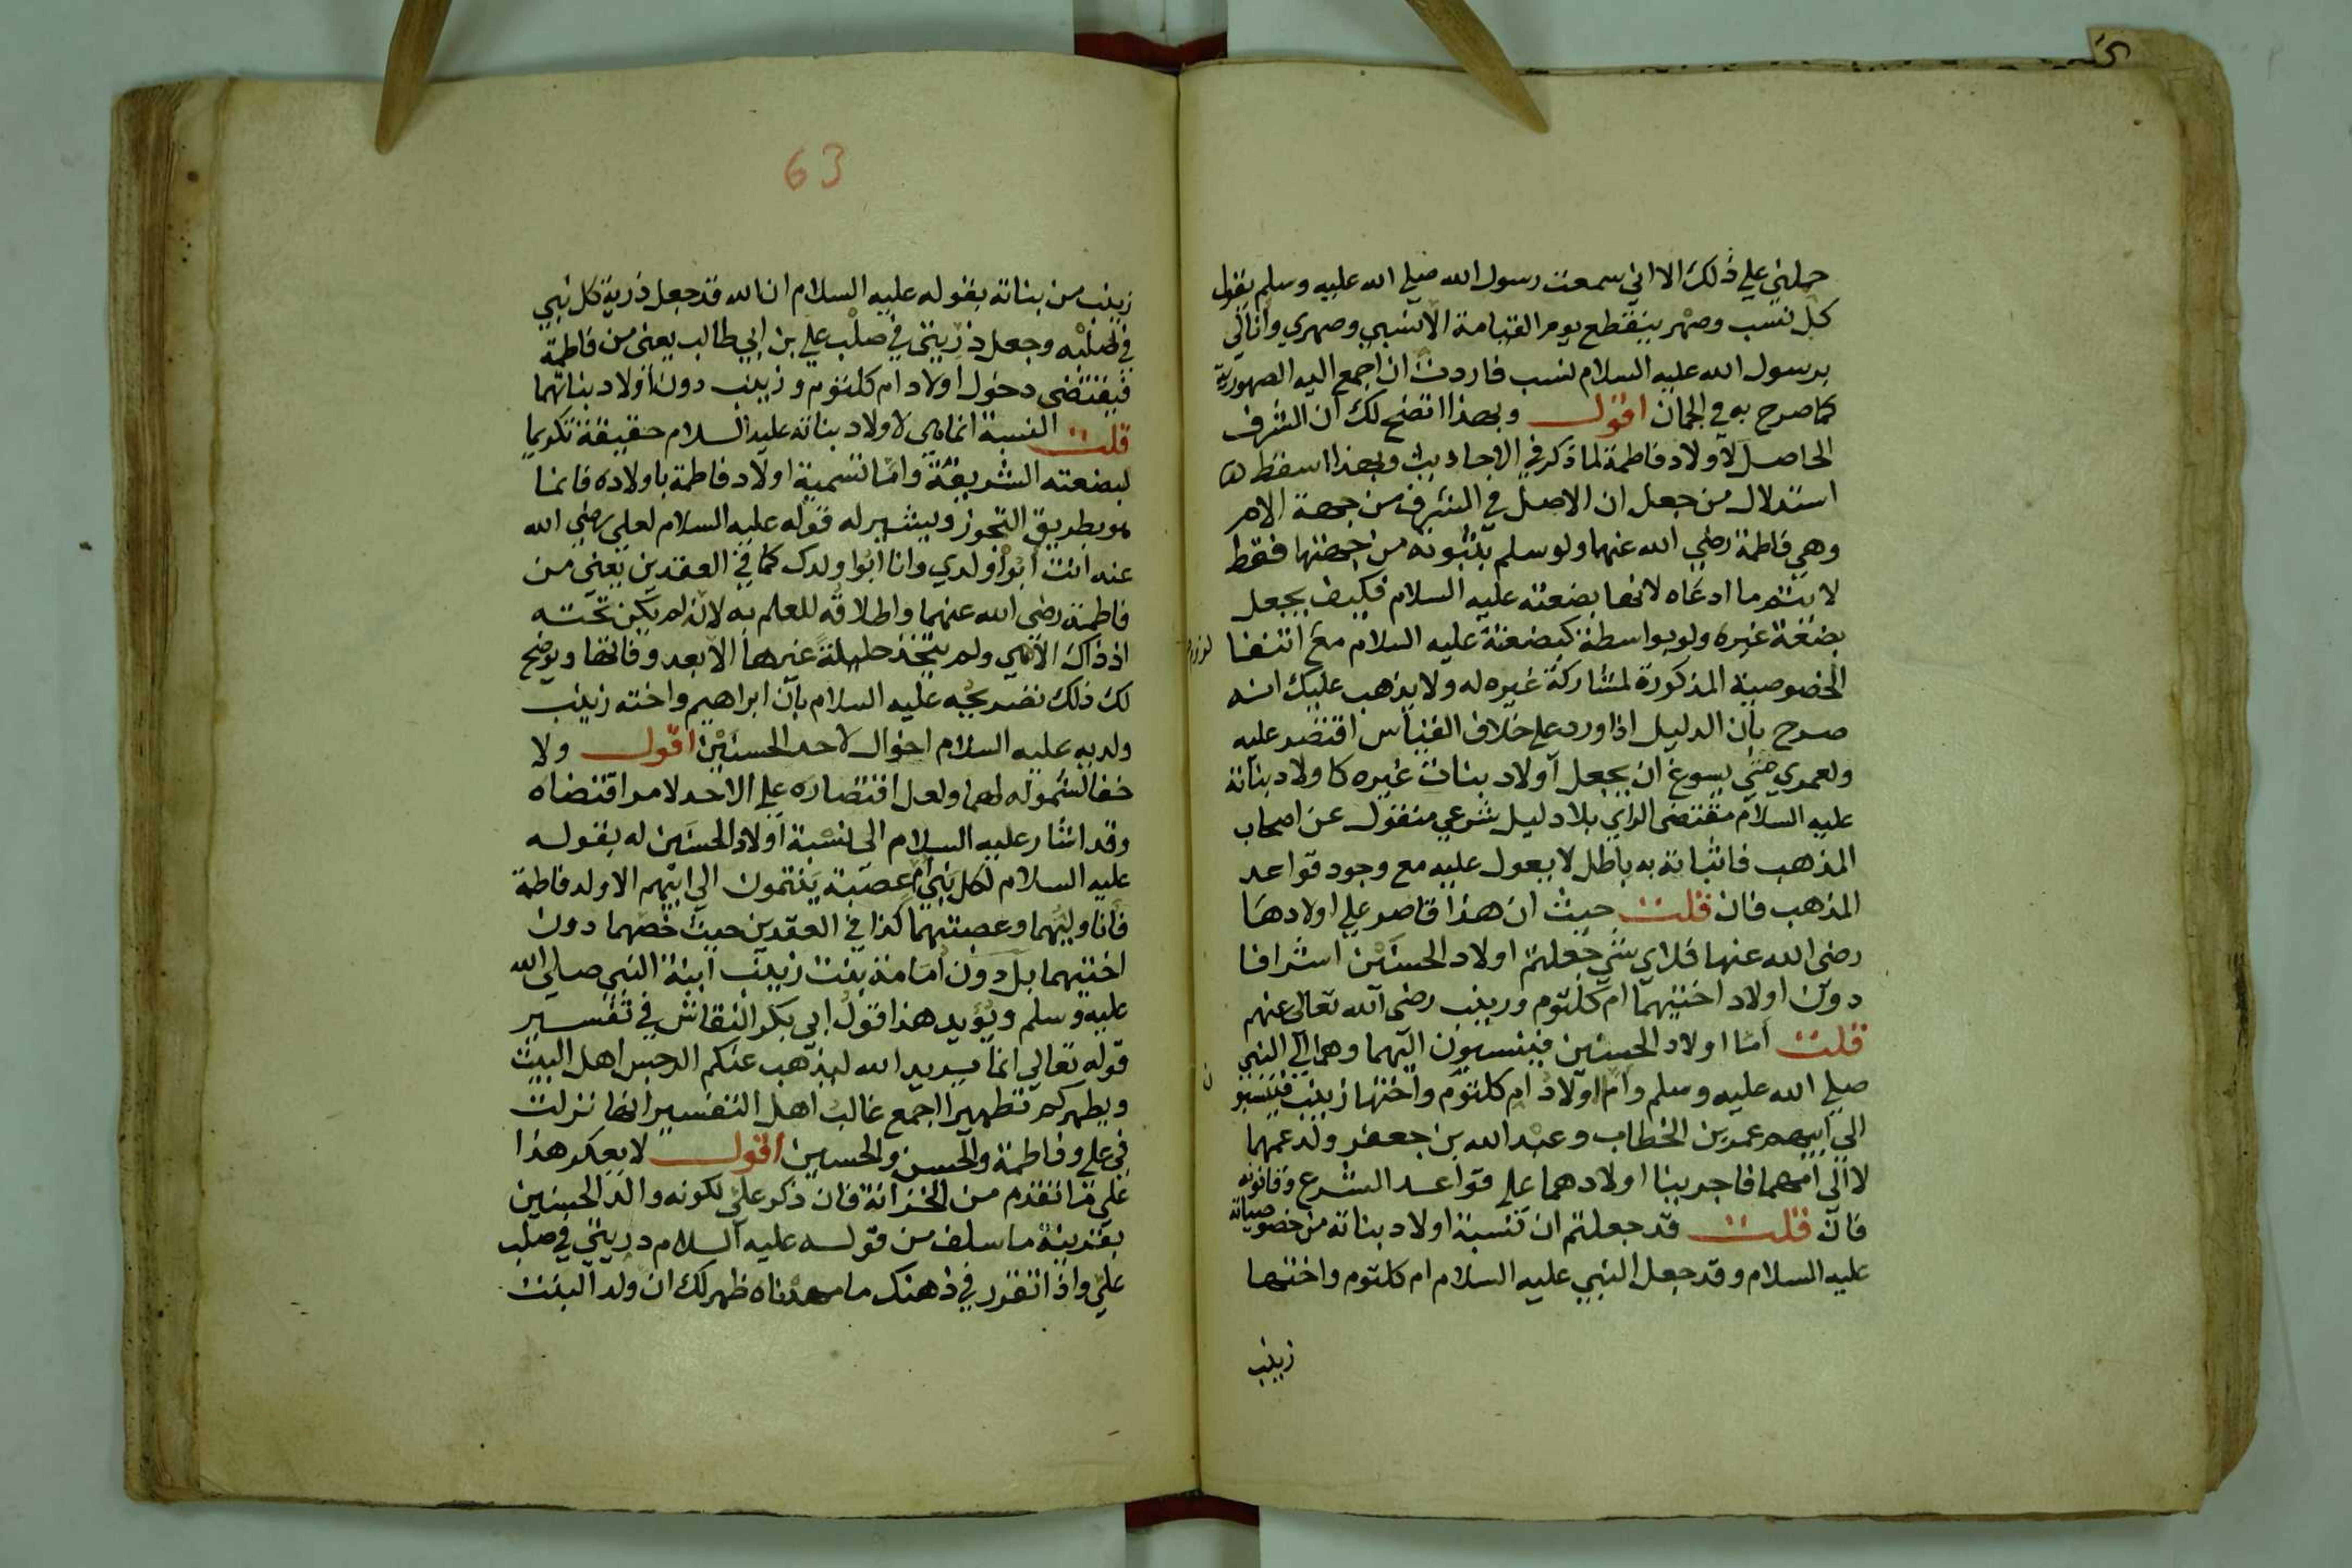 حملني علي ذلك الا اني سمعت رسول الله صلي الله عليه وسلم يقول
كل نسب وصهر ينقطع يوم القيامة الا نسبي وصهري وانا لي
برسول الله عليه السلام نسب فاردت ان اجمع اليه الصهورية
كما صرح به في الجمان اقول وبهذا اتضح لك ان الشرف
الحاصل لاولاد فاطمة لما ذكر في الاحاديث وبهذا اسقط
استدلال من جعل ان الاصل في الشرف من جهة الام
وهي فاطمة رضي الله عنهما ولو سلم بثبوته من جهتها فقط
لا يتم ما ادعاه لانها بضعته عليه السلام فكيف يجعل
بضعة غيره ولو بواسطة كبضعته عليه السلام مع انتفا
الخصوصية المذكورة لمشاركة غيره له ولا يذهب عليك انه
صرح بان الدليل اذا ورد علي خلاف القياس اقتصر عليه
ولعمري حتي يسوغ ان يجعل اولاد بنات غيره كاولاد بناته
عليه السلام مقتضي الراي بلا دليل شرعي منقول عن اصحاب
المذهب فاثباته به باطل لا يعول عليه مع وجود قواعد
المذهب فان قلت حيث ان هذا قاصر علي اولادها
رضي الله عنها فلاي شي جعلتم اولاد الحسنين اشرافا
دون اولاد اختيهما ام كلثوم وزينب رضي الله تعالي عنهم
قلت اما اولاد الحسنين فينسبون اليهما وهما الي النبي
صلي الله عليه وسلم واما اولاد ام كلثوم واختها زينب فينسبو
ن
الي ابيهم عمر بن الخطاب وعبد الله بن جعفر ولد عمهما
لا الي امهما فاجرينا اولادهما علي قواعد الشرع وقانونه
فان قلت قد جعلتم ان نسبة اولاد بناته من خصوصياته
عليه السلام وقد جعل النبي عليه السلام ام كلثوم واختها
زينب
63
زينب من بناته بقوله عليه السلام ان الله قد جعل ذرية كل نبي
في صلبه وجعل ذريتي في صلب علي بن ابي طالب يعني من فاطمة
فيقتضي دخول اولاد ام كلثوم وزينب دون اولاد بناتهما
قلت النسبة انما هي لاولاد بناته عليه السلام حقيقة تكريما
لبضعته الشريفة واما تسمية اولاد فاطمة باولاده فانما
هو بطريق التجوز ويشير له قوله عليه السلام لعلي رضي الله
عنه انت ابو اولدي وانا ابوا ولدك كما في العقدين يعني من
فاطمة رضي الله عنهما واطلاقه للعلم به لانه لم يكن تحته
اذ ذاك الا هي ولم يتخذ حليلة غيرها الا بعد وفاتها ويوضح
لك ذلك تصريحه عليه السلام بان ابراهيم واخته زينب
ولديه عليه السلام اخوال لاحد الحسنين اقول ولا
خفا لشموله لهما ولعل اقتصاره علي الاحد لامر اقتضاه
وقد اشار عليه السلام الي نسبة اولاد الحسنين له بقوله
عليه السلام لكل بني ام عصبة ينتمون الي ابيهم الا ولد فاطمة
فانا وليهما وعصبتهما كذا في العقدين حيث خصهما دون
اختيهما بل دون امامة بنت زينب ابنة النبي صلي الله
عليه وسلم ويؤيد هذا قول ابي بكر النقاش في تفسير
قوله تعالي انما يريد الله ليذهب عنكم الرجس اهل البيت
ويطهركم تطهيرا اجمع غالب اهل التفسير انها نزلت
في علي وفاطمة والحسن والحسين اقول لا يعكر هذا
علي ما تقدم من الخزانة فان ذكر علي لكونه والد الحسنين
بقرينة ما سلف من قوله عليه السلام دريتي في صلب
علي واذا تقرر في ذهنك ما مهدناه ظهر لك ان ولد البنت